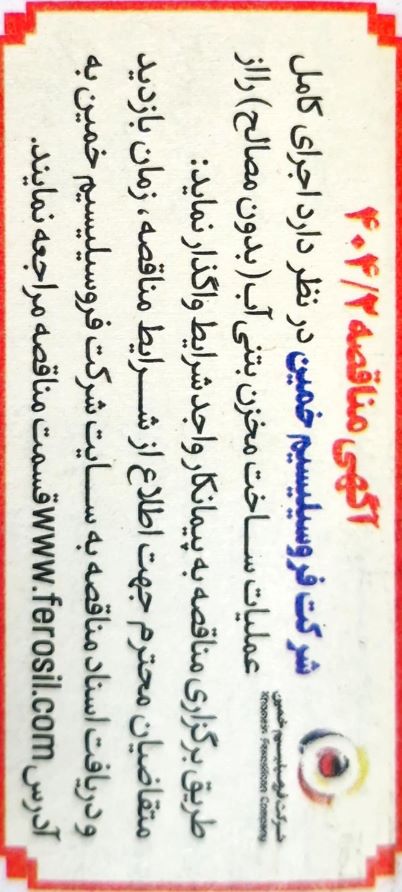 آگهی مناقصه ۴۰۴/۲
شرکت فروسیلیسیم خمین
Khomein Ferrosilicon Company
شرکت فروسیلیسیم خمین در نظر دارد اجرای کامل
عملیات ساخت مخزن بتنی آب (بدون مصالح) را از
طریق برگزاری مناقصه به پیمانکار واجد شرایط واگذار نماید:
متقاضیان محترم جهت اطلاع از شرایط مناقصه، زمان بازدید
و دریافت اسناد مناقصه به سایت شرکت فروسیلیسیم خمین به
آدرس www.ferosil.com قسمت مناقصه مراجعه نمایند.